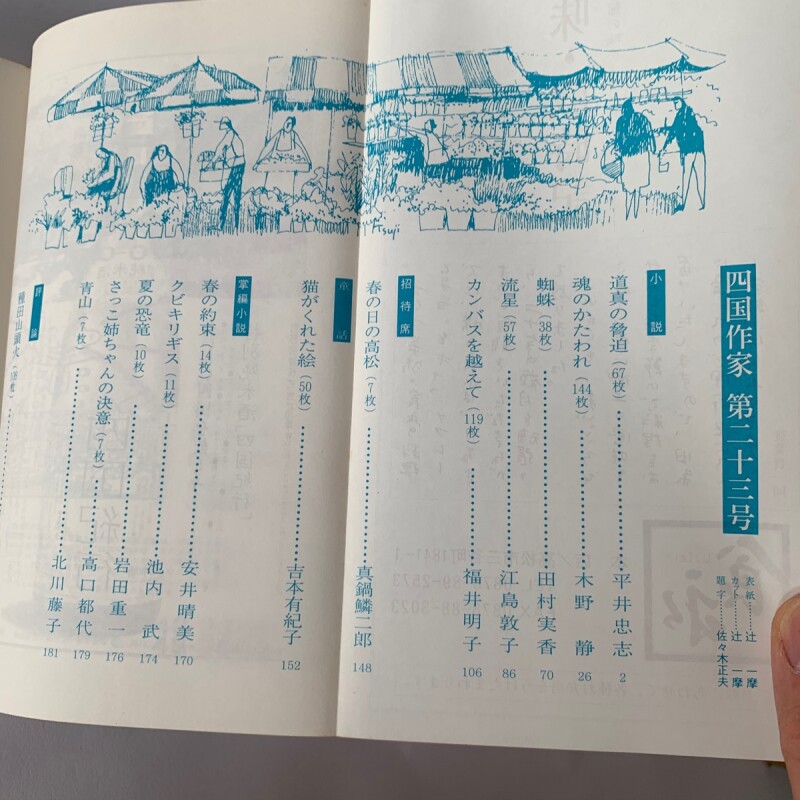 四国作家 第二十三号
表紙……辻 一摩
カット……辻 一摩
題字……佐々木正夫
小説
道真の脅迫（67枚）……平井忠志 2
魂のかたわれ（144枚）……木野 静 26
蜘蛛（38枚）……田村実香 70
流星（57枚）……江島敦子 86
カンバスを越えて（119枚）……福井明子 106
招待席
春の日の高松（7枚）……真鍋鱗二郎 148
童話
猫がくれた絵（50枚）……吉本有紀子 152
掌編小説
春の約束（14枚）……安井晴美 170
クビキリギス（11枚）……池内 武 174
夏の恐竜（10枚）……岩田重一 176
さっこ姉ちゃんの決意（7枚）……高口都代 179
青山（7枚）……北川藤子 181
評論
種田山頭火
Tsuji